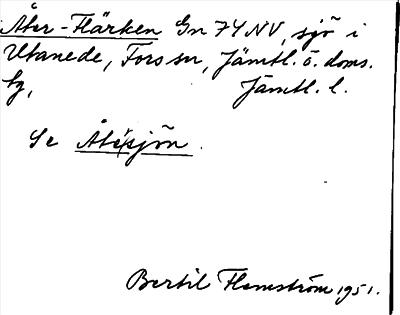 Åter-Flärken Gn 7YNV, sjö i
Utanede, Fors sn, Jämtl. ö. doms.
tg, Jämtl. l.
Se Åtesjön.
Bertil Flemström 1951.